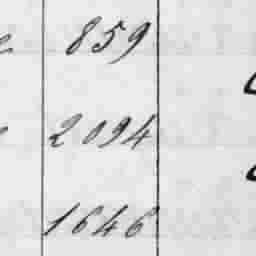 859
2094
1646